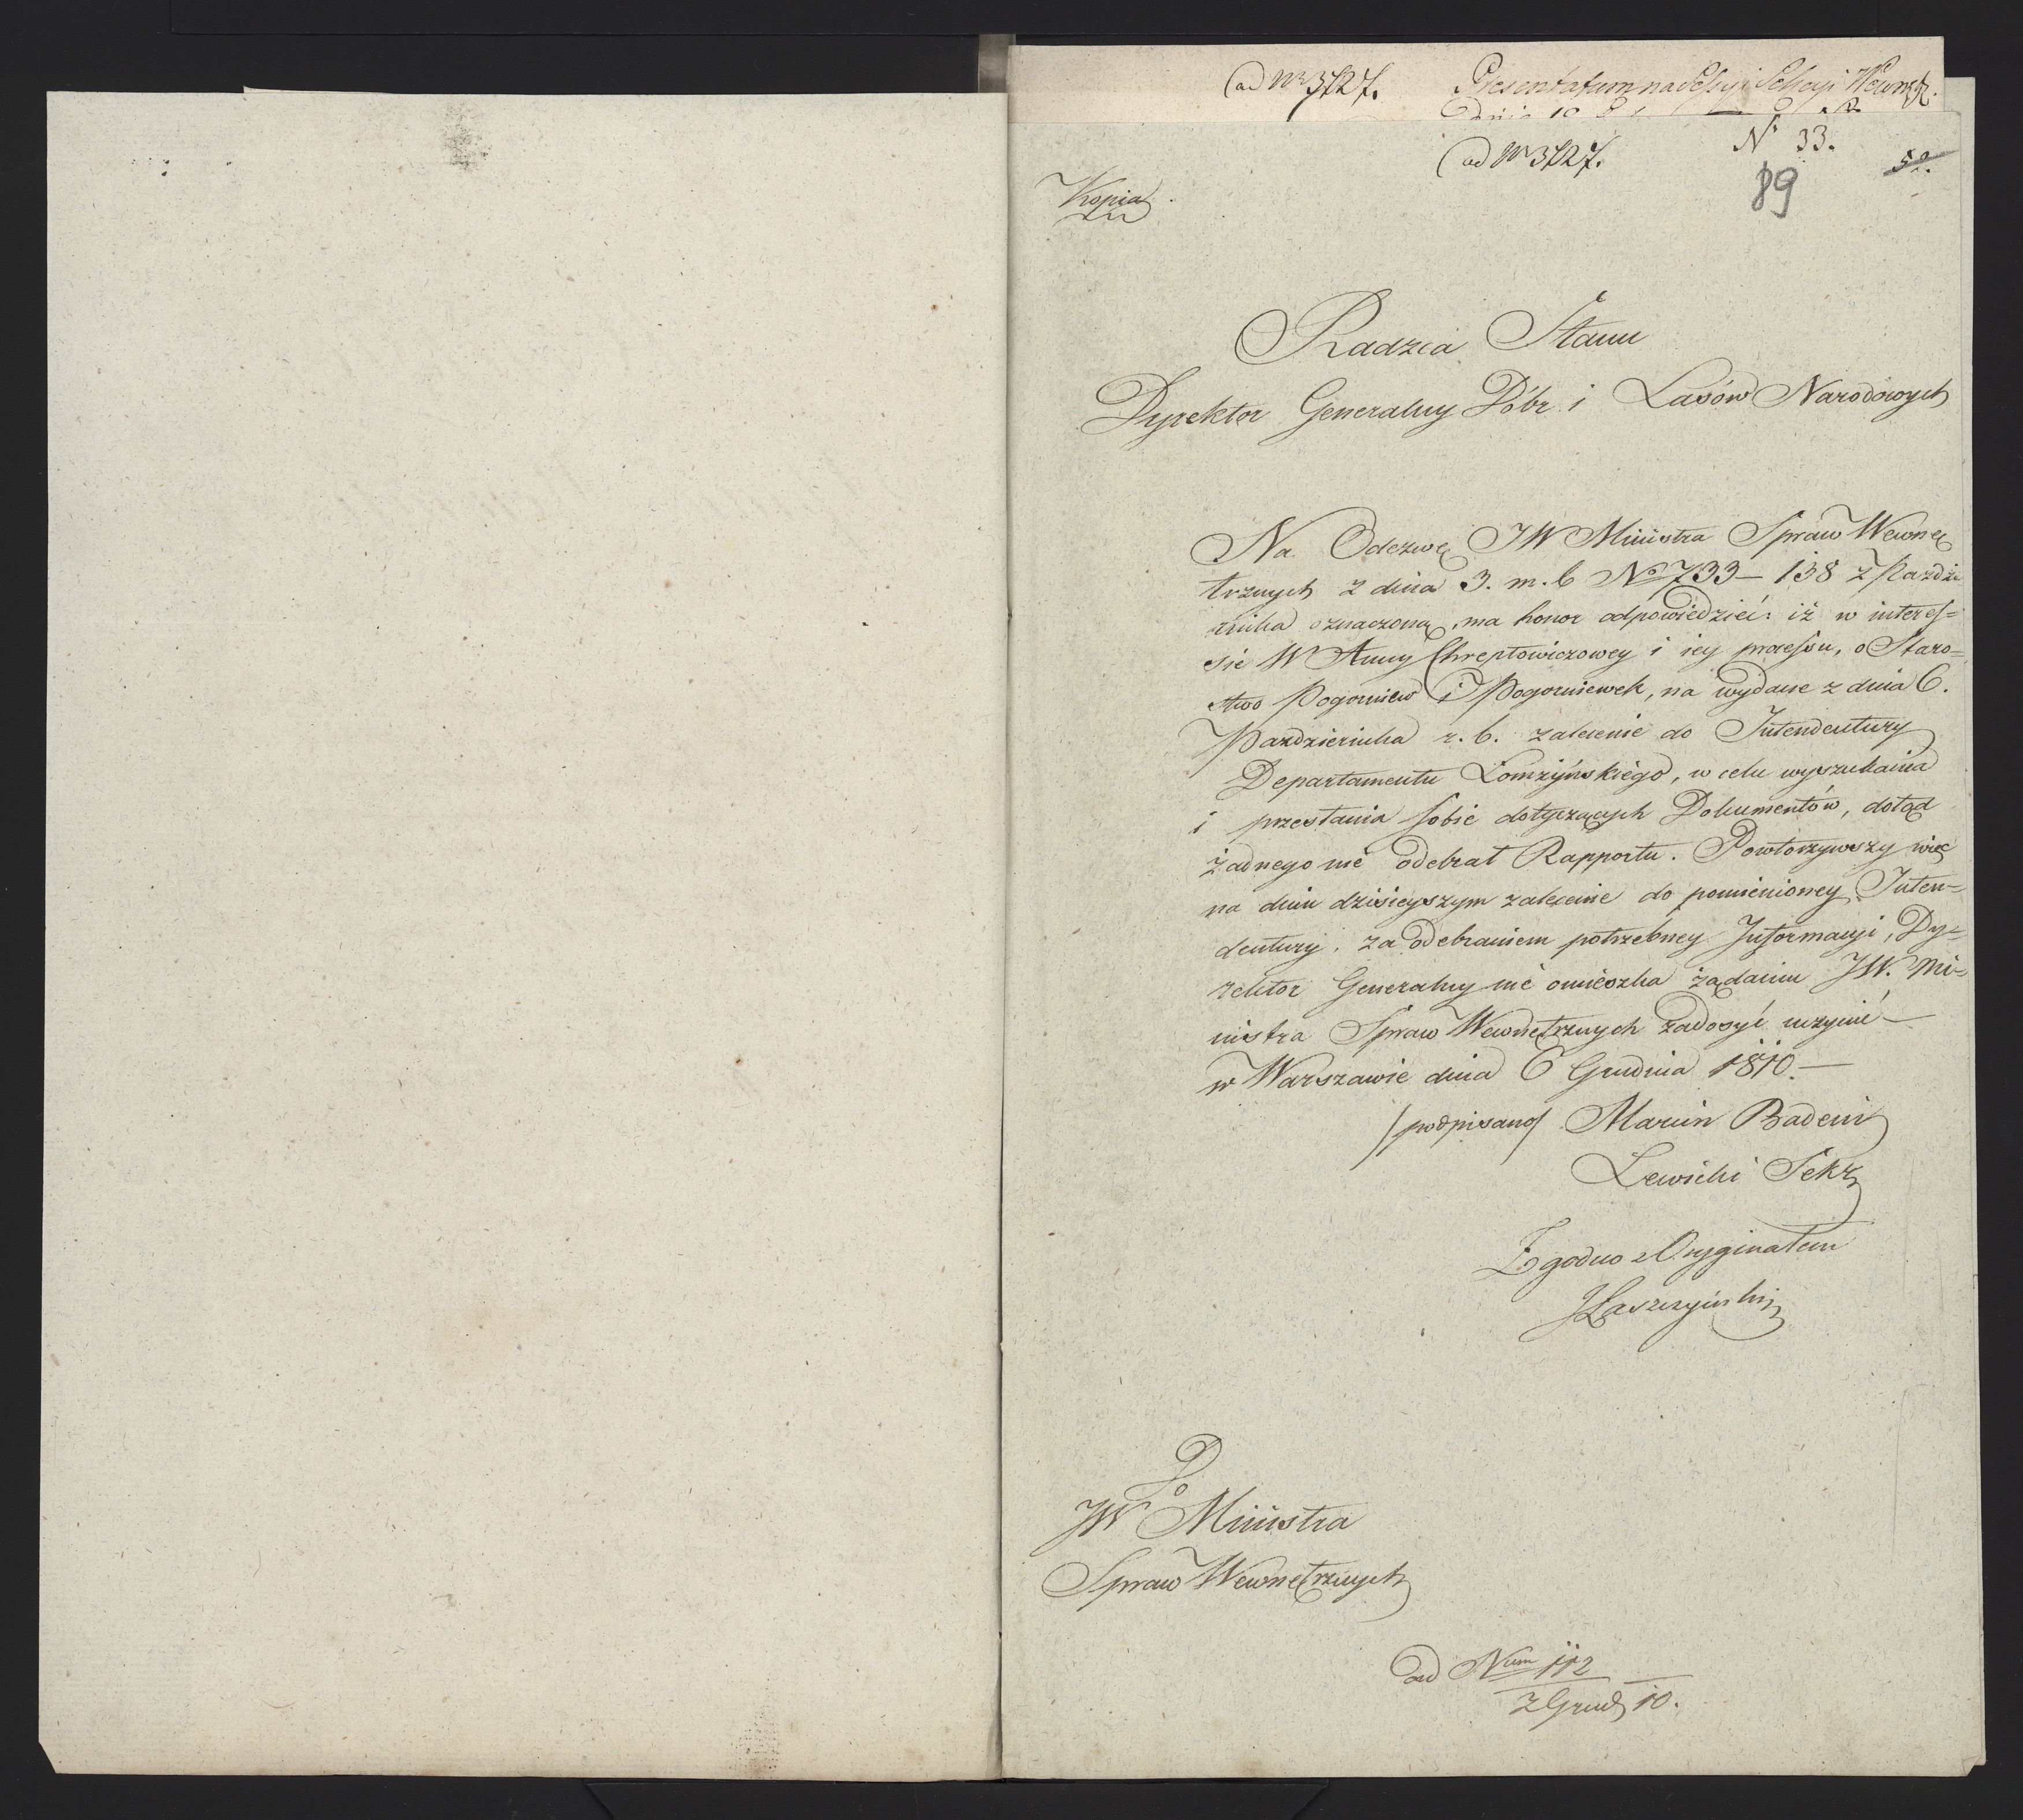 ad Nr 3727. Presentatum na Sessyi Sekcyi Wewnętz.
Dnia 10
ad Nr 3727. Nr 33.
52.
89
Kopia
Radzca Stanu
Dyrektor Generalny Dóbr i Lasów Narodowych
Na Odezwę JW Ministra Spraw Wewnę
trznych z dnia 3. m. b No 733 – 138 z Paździe
rnika oznaczoną, ma honor odpowiedzieć: iż w interes=
sie W Anny Chreptowiczowey i iey processu, o Staro=
stwo Pogorniew i Pogorniewek, na wydane z dnia 6.
Pazdziernika r. b. zalecenie do Intendentury
Departamentu Łomżyńskiego, w celu wyszukania
i przesłania sobie dotyczących Dokumentów, dotąd
żadnego nie odebrał Rapportu. Powtorzywszy więc
na dniu dzisieyszym zalecenie do pomienioney Inten=
dentury, za odebraniem potrzebney Informacyi, Dy=
rektor Generalny nie omieszka żądaniu JW. Mi=
nistra Spraw Wewnętrznych zadosyć uczynić —
w Warszawie dnia 6 Grudnia 1810. —
/podpisano/ Marcin Badeni
Lewicki Sekr
Zgodno z Oryginałem
JŁaszczyński
Do
JW Ministra
Spraw Wewnętrznych
ad Num 112
z Grud 10.